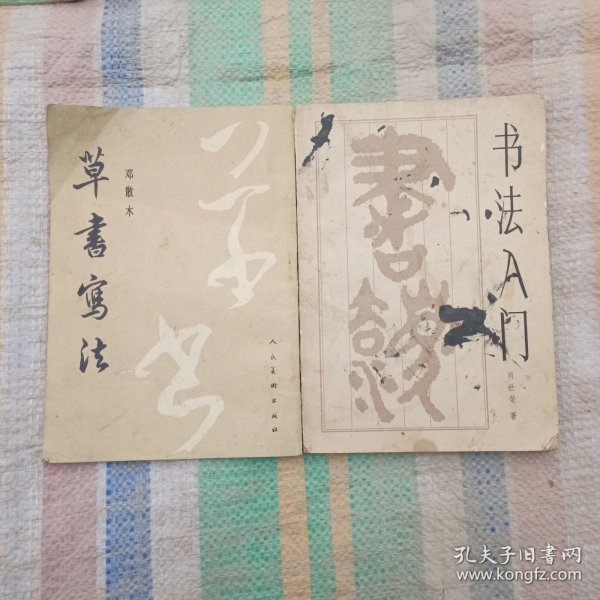 草書寫法
邓散木
草书
人民美術出版社
书法入门
肖世荣 著
孔夫子旧书网
www.kongfz.com